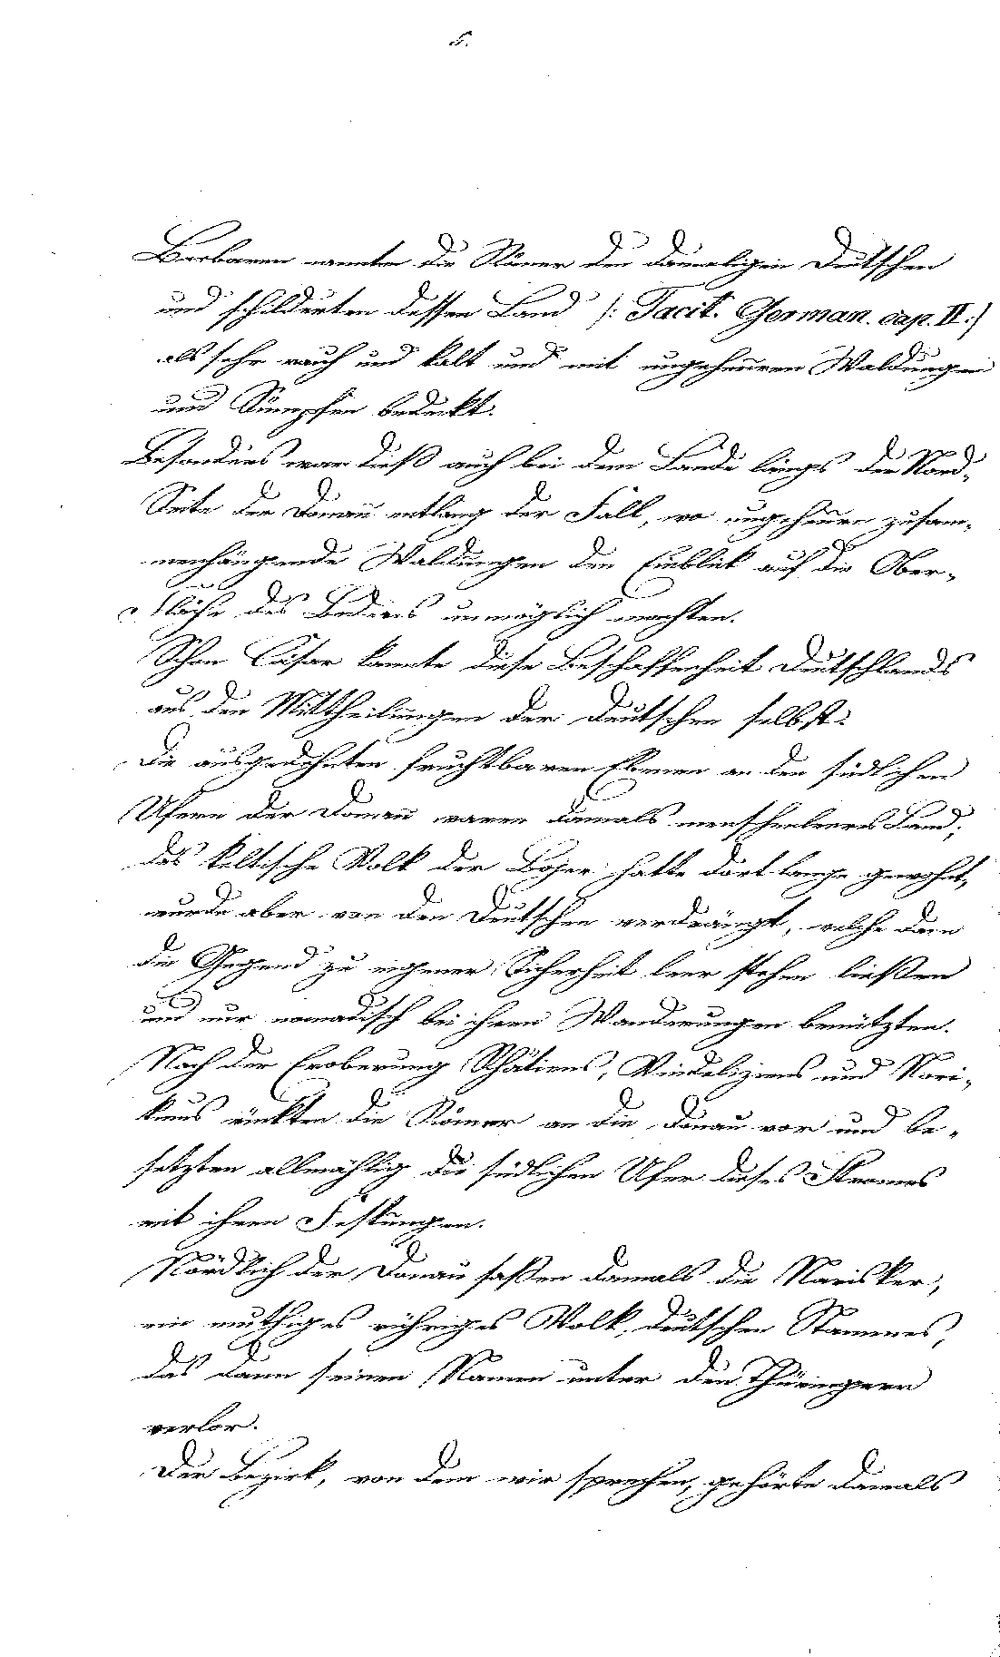 5.
Barbaren nannten die Römer den damaligen Deutschen
und schilderten dessen Land /: Tacit. German. cap. II :/
als sehr rauh und kalt und mit ungeheueren Waldungen
und Sümpfen bedeckt.
Besonders war dieß auch bei dem Lande längs der Nord-
Seite der Donau entlang der Fall, wo ungeheure zusam-
menhängende Waldungen den Einblick auf die Ober-
fläche des Bodens unmöglich machten.
Schon Cäsar kannte diese Beschaffenheit Deutschlands
aus den Mittheilungen der Deutschen selbst.
Die ausgedehnten fruchtbaren Ebenen an den südlichen
Ufern der Donau waren damals menschenleeres Land;
das keltische Volk der Bojer hatte dort lange gewohnt,
wurde aber von den Deutschen verdrängt, welche dann
die Gegend zu eigener Sicherheit leer stehen ließen
und nur nomadisch bei ihren Wanderungen benützten.
Nach der Eroberung Rhätiens, Vindeliziens und Nori-
kums rückten die Römer an die Donau vor und be-
setzten allmählig die südlichen Ufer dieses Stromes
mit ihren Festungen.
Nördlich der Donau saßen damals die Narisker,
ein muthiges rühriges Volk, deutschen Stammes,
das dann seinen Namen unter den Thüringern
verlor.
Der Bezirk, von dem wir sprechen, gehörte damals